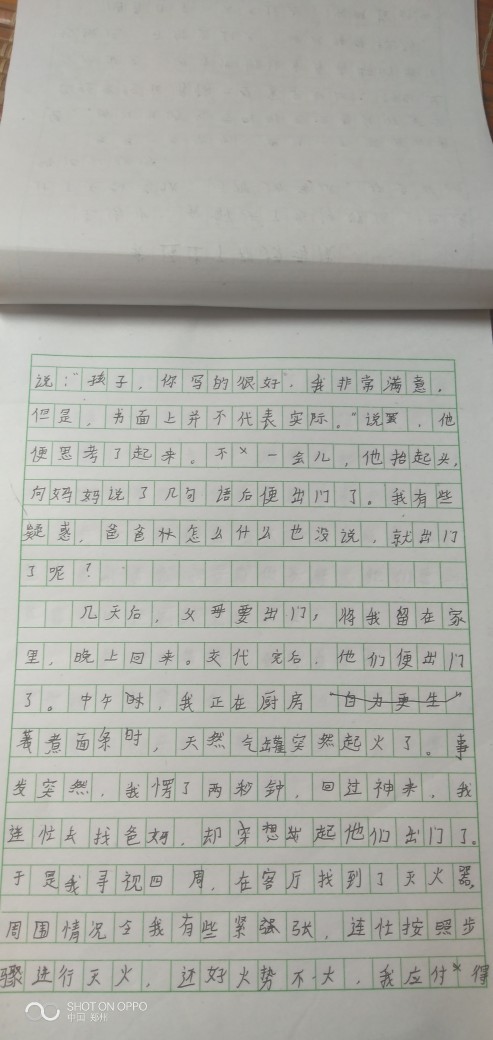 说：“孩子，你写的很好，我非常满意，
但是，书面上并不代表实际。”说罢，他
便思考了起来。不一会儿，他抬起头，
向妈妈说了几句语后便出门了。我有些
疑惑，爸爸怎么什么也没说，就出门
了呢？
几天后，父母要出门，将我留在家
里，晚上回来。交代完后，他们便出门
了。中午时，我正在厨房“自力更生”
煮面条时，天然气罐突然起火了。事
发突然，我愣了两秒钟，回过神来，我
连忙去找爸妈，却突想起他们出门了。
于是我寻视四周，在客厅找到了灭火器，
周围情况令我有些紧张，连忙按照步
骤进行灭火，还好火势不大，我应付得
SHOT ON OPPO
中国·郑州